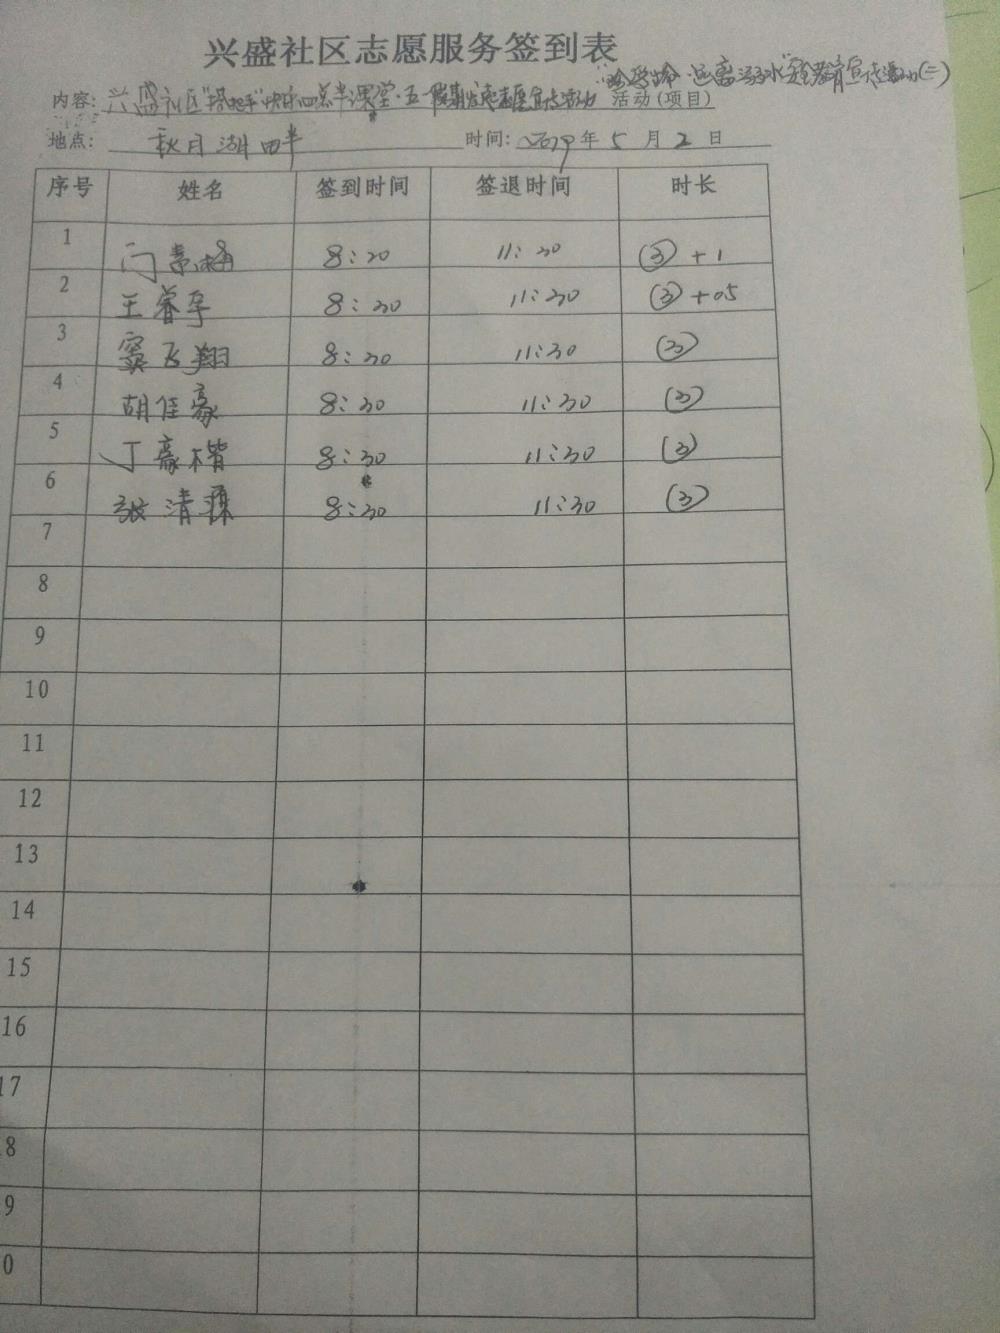 兴盛社区志愿服务签到表
"珍爱生命 远离溺水"安全教育宣传活动(二)
内容: 兴盛社区"搭把手"快乐四点半课堂·五一假期 志愿宣传活动 活动(项目)
地点: 秋月湖畔 时间: 2019年 5 月 2 日
序号 姓名 签到时间 签退时间 时长
1 门素梅 8:20 11:30 ③ +1
2 王睿孚 8:30 11:30 ③ +0.5
3 窦飞翔 8:30 11:30 ③
4 胡佳豪 8:30 11:30 ③
5 丁豪楷 8:30 11:30 ③
6 张清 8:30 11:30 ③
7
8
9
10
11
12
13
14
15
16
17
8
9
0